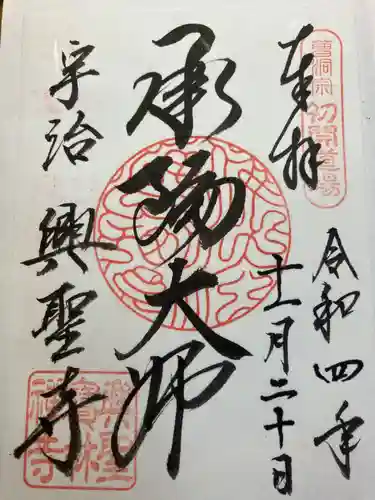 奉拝
曹洞宗初開道場
令和四年
十一月二十日
承陽大師
宇治 興聖寺